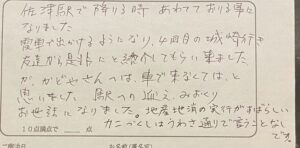 佐津駅で降りる時 あわてており る事に
なりました
電車で出かけるようになり、4回目の城崎です
友達から是非にと紹介してもらい来ました
が、かどやさんへは、車で来なくては、と
思いました 駅への迎え、みおくり
お世話になりました。地産地消の実行がすばらしい
カニづくしはうわさ通りで言うことなし
です。
10点満点で 点
ご宿泊日 お名前(